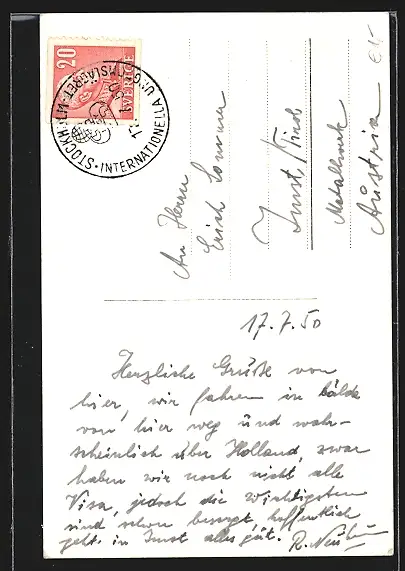 20
SVERIGE
STOCKH
INTERNATIONELLA UNG
LÄGRET
An Herrn
Erich
Imst / Tirol
Metallwerk
Austria
17.7.50
Herzliche Grüße von
hier, wir fahren in bälde
von hier weg und wahr-
scheinlich über Holland, zwar
haben wir noch nicht alle
Visa, jedoch die wichtigsten
sind schon besorgt, hoffentlich
geht in Imst alles gut.
R.